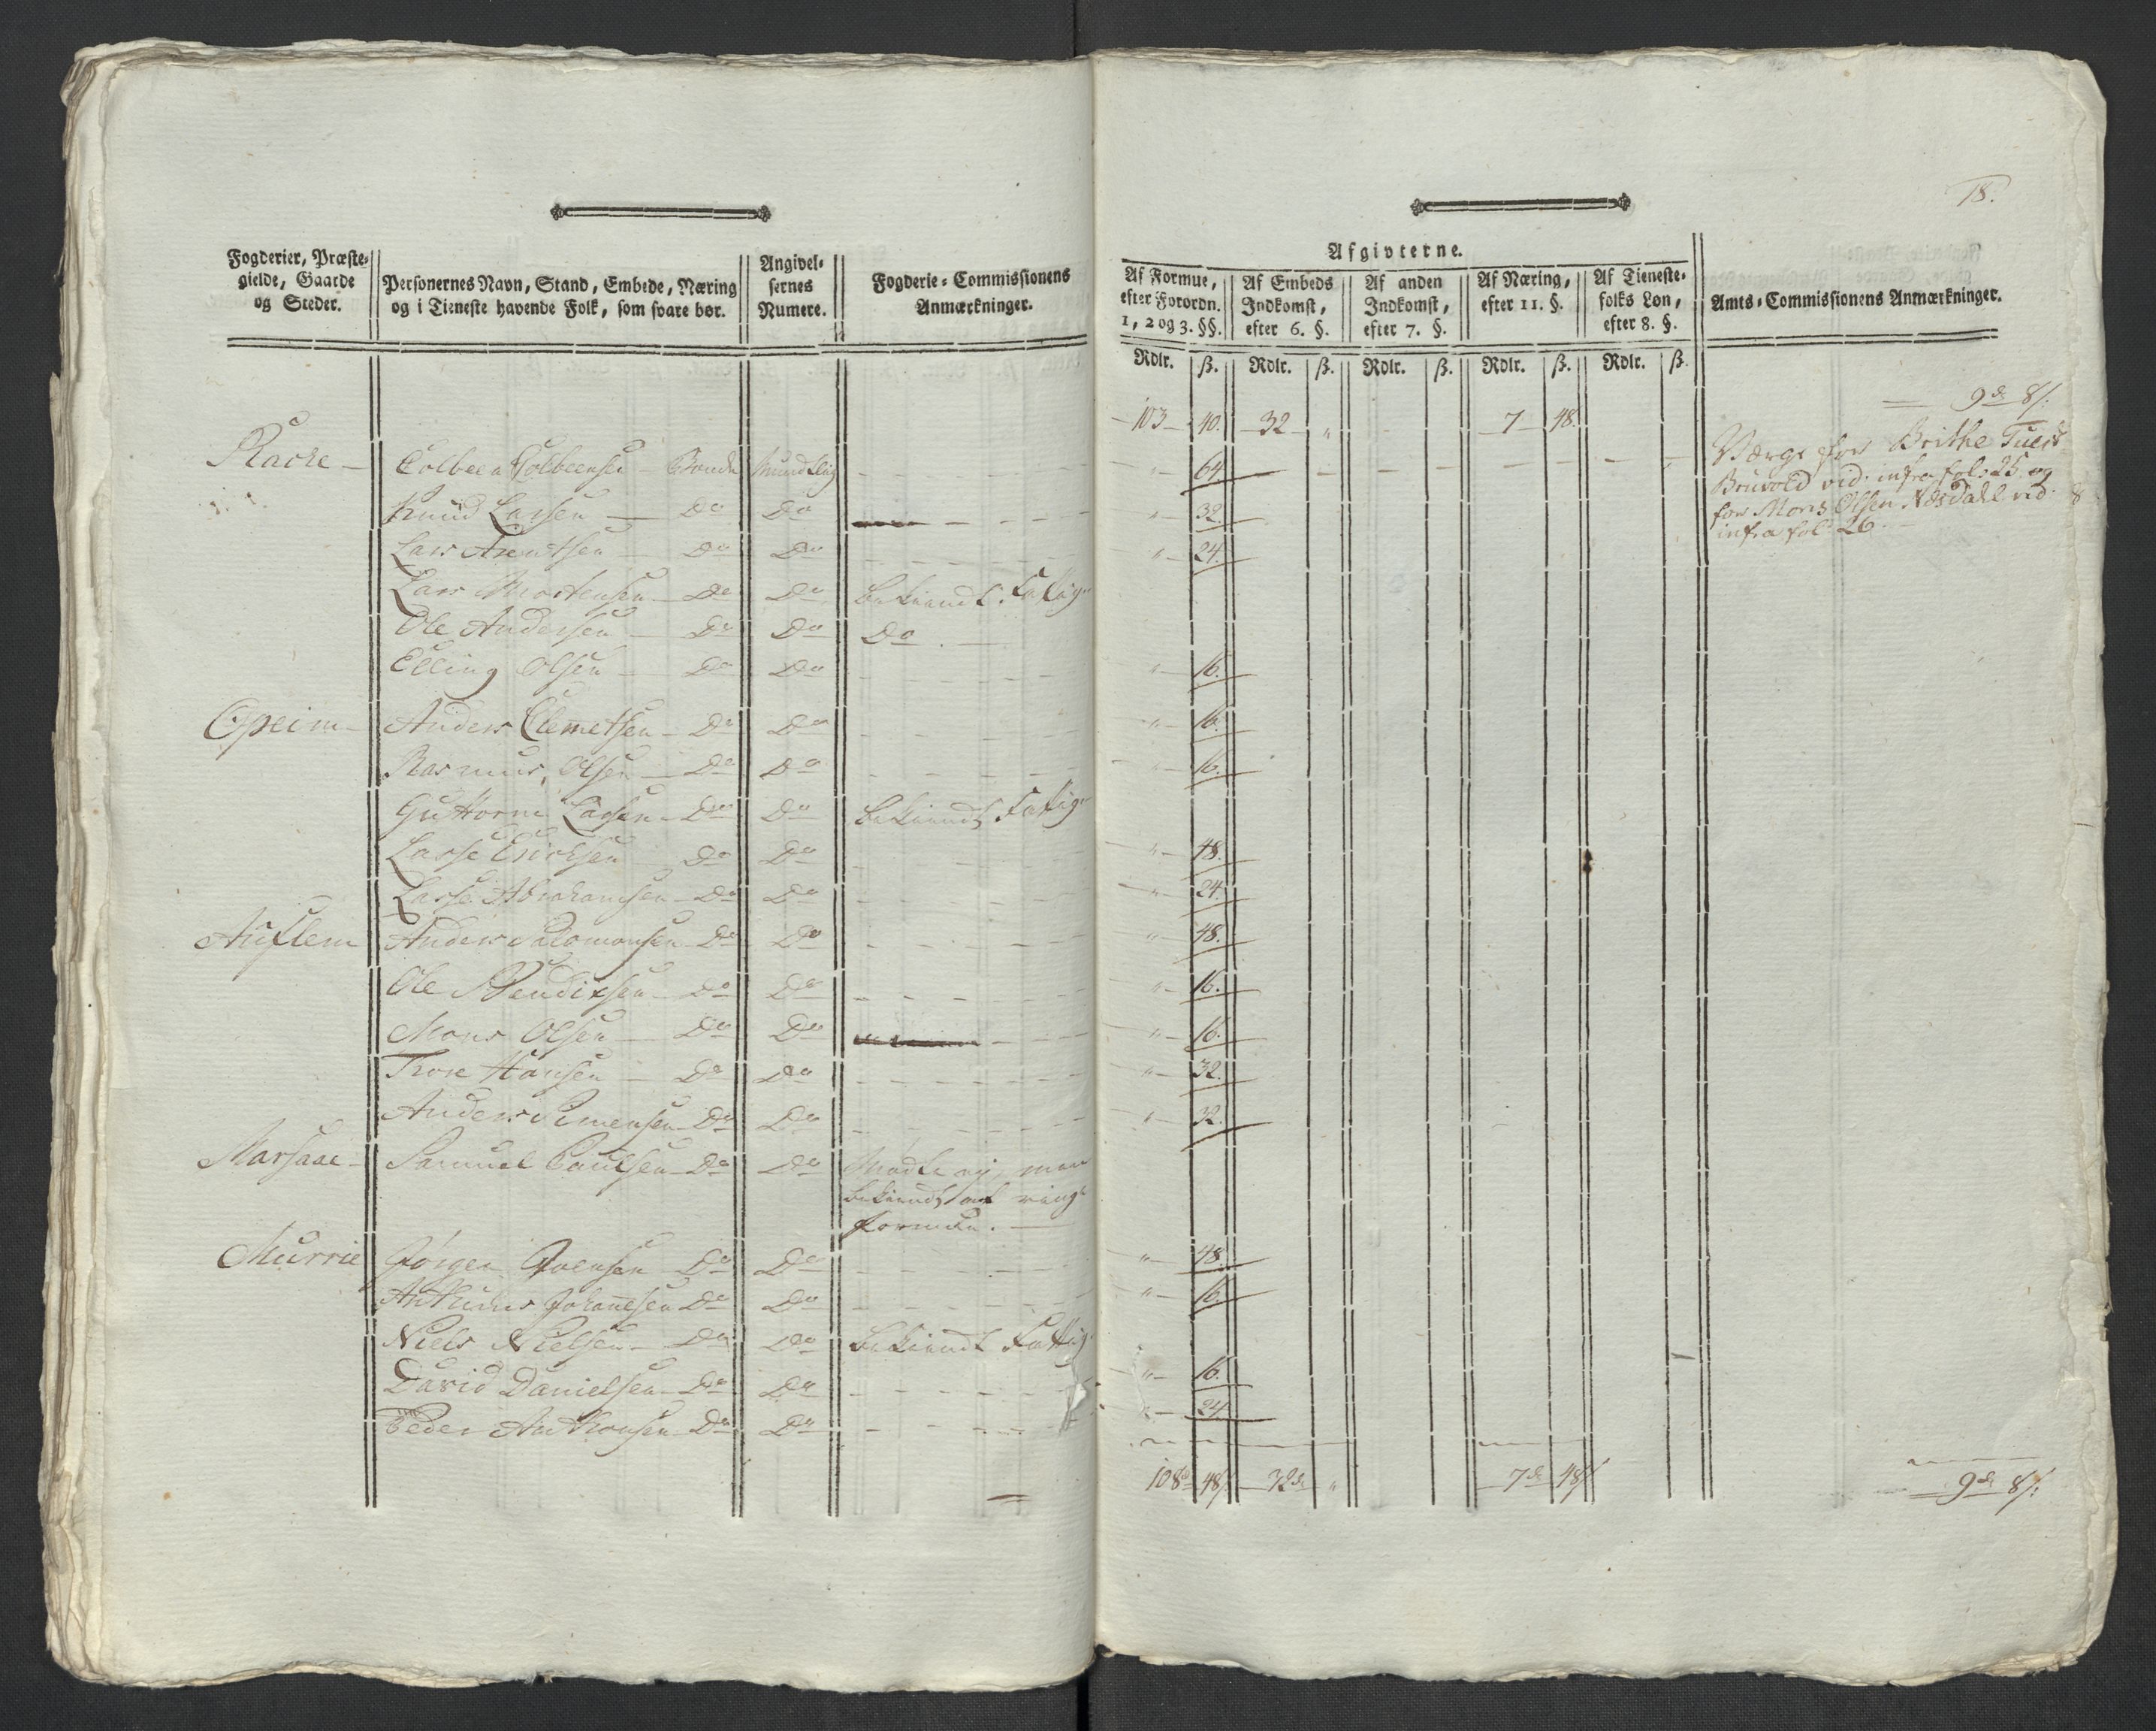 18.
Fogderier, Præste-
gielde, Gaarde
og Steder.
Personernes Navn, Stand, Embede, Næring
og i Tieneste havende Folk, som svare bør.
Angivel-
sernes
Numere.
Fogderie-Commissionens
Anmærkninger.
Afgivterne.
Af Formue,
efter Forordn.
1, 2 og 3. §§.
Af Embeds
Indkomst,
efter 6. §.
Af anden
Indkomst,
efter 7. §.
Af Næring,
efter 11. §.
Af Tieneste-
folks Løn,
efter 8. §.
Amts-Commissionens Anmærkninger.
Rdlr. ß. Rdlr. ß. Rdlr. ß. Rdlr. ß. Rdlr. ß.
103 40. 32 „ 7 48. 9 8/:
Racke Colbeen Colbeensen Bonde Mundtlig „ 64
Værge for Brithe
Bruvold vid. infra fol: 25 og
for Mons Olsen Næsdahl vid.
infra fol. 26.
Knud Larsen Do Do „ 32.
Lars Arentsen Do Do „ 24.
Lars Mortensen Do Do bekiendt Fattig
Ole Andersen Do Do Do
Elling Olsen Do Do „ 16.
Opeim Anders Clemetsen Do Do „ 16.
Rasmus Olsen Do Do „ 16.
Guttorm Larsen Do Do bekiendt Fattig
Lasse Erichsen Do Do „ 48.
Lasse Abrahamsen Do Do „ 24.
Auflem Anders Salomonsen Do Do „ 48.
Ole Bendixsen Do Do „ 16.
Mons Olsen Do Do „ 16.
Thore Hansen Do Do „ 32.
Anders Simensen Do Do „ 32.
Marsaae Samuel Paulsen Do Do Mødte ej, men
bekiendt af ringe
formue.
Murrie Jørgen Iversen Do Do „ 48.
Anthonus Johannesen Do Do „ 16.
Niels Nielsen Do Do bekiendt Fattig
David Danielsen Do Do „ 16.
Peder Anthonsen Do Do „ 24
108 48/ 32 „ 7 48/ 9 8/: